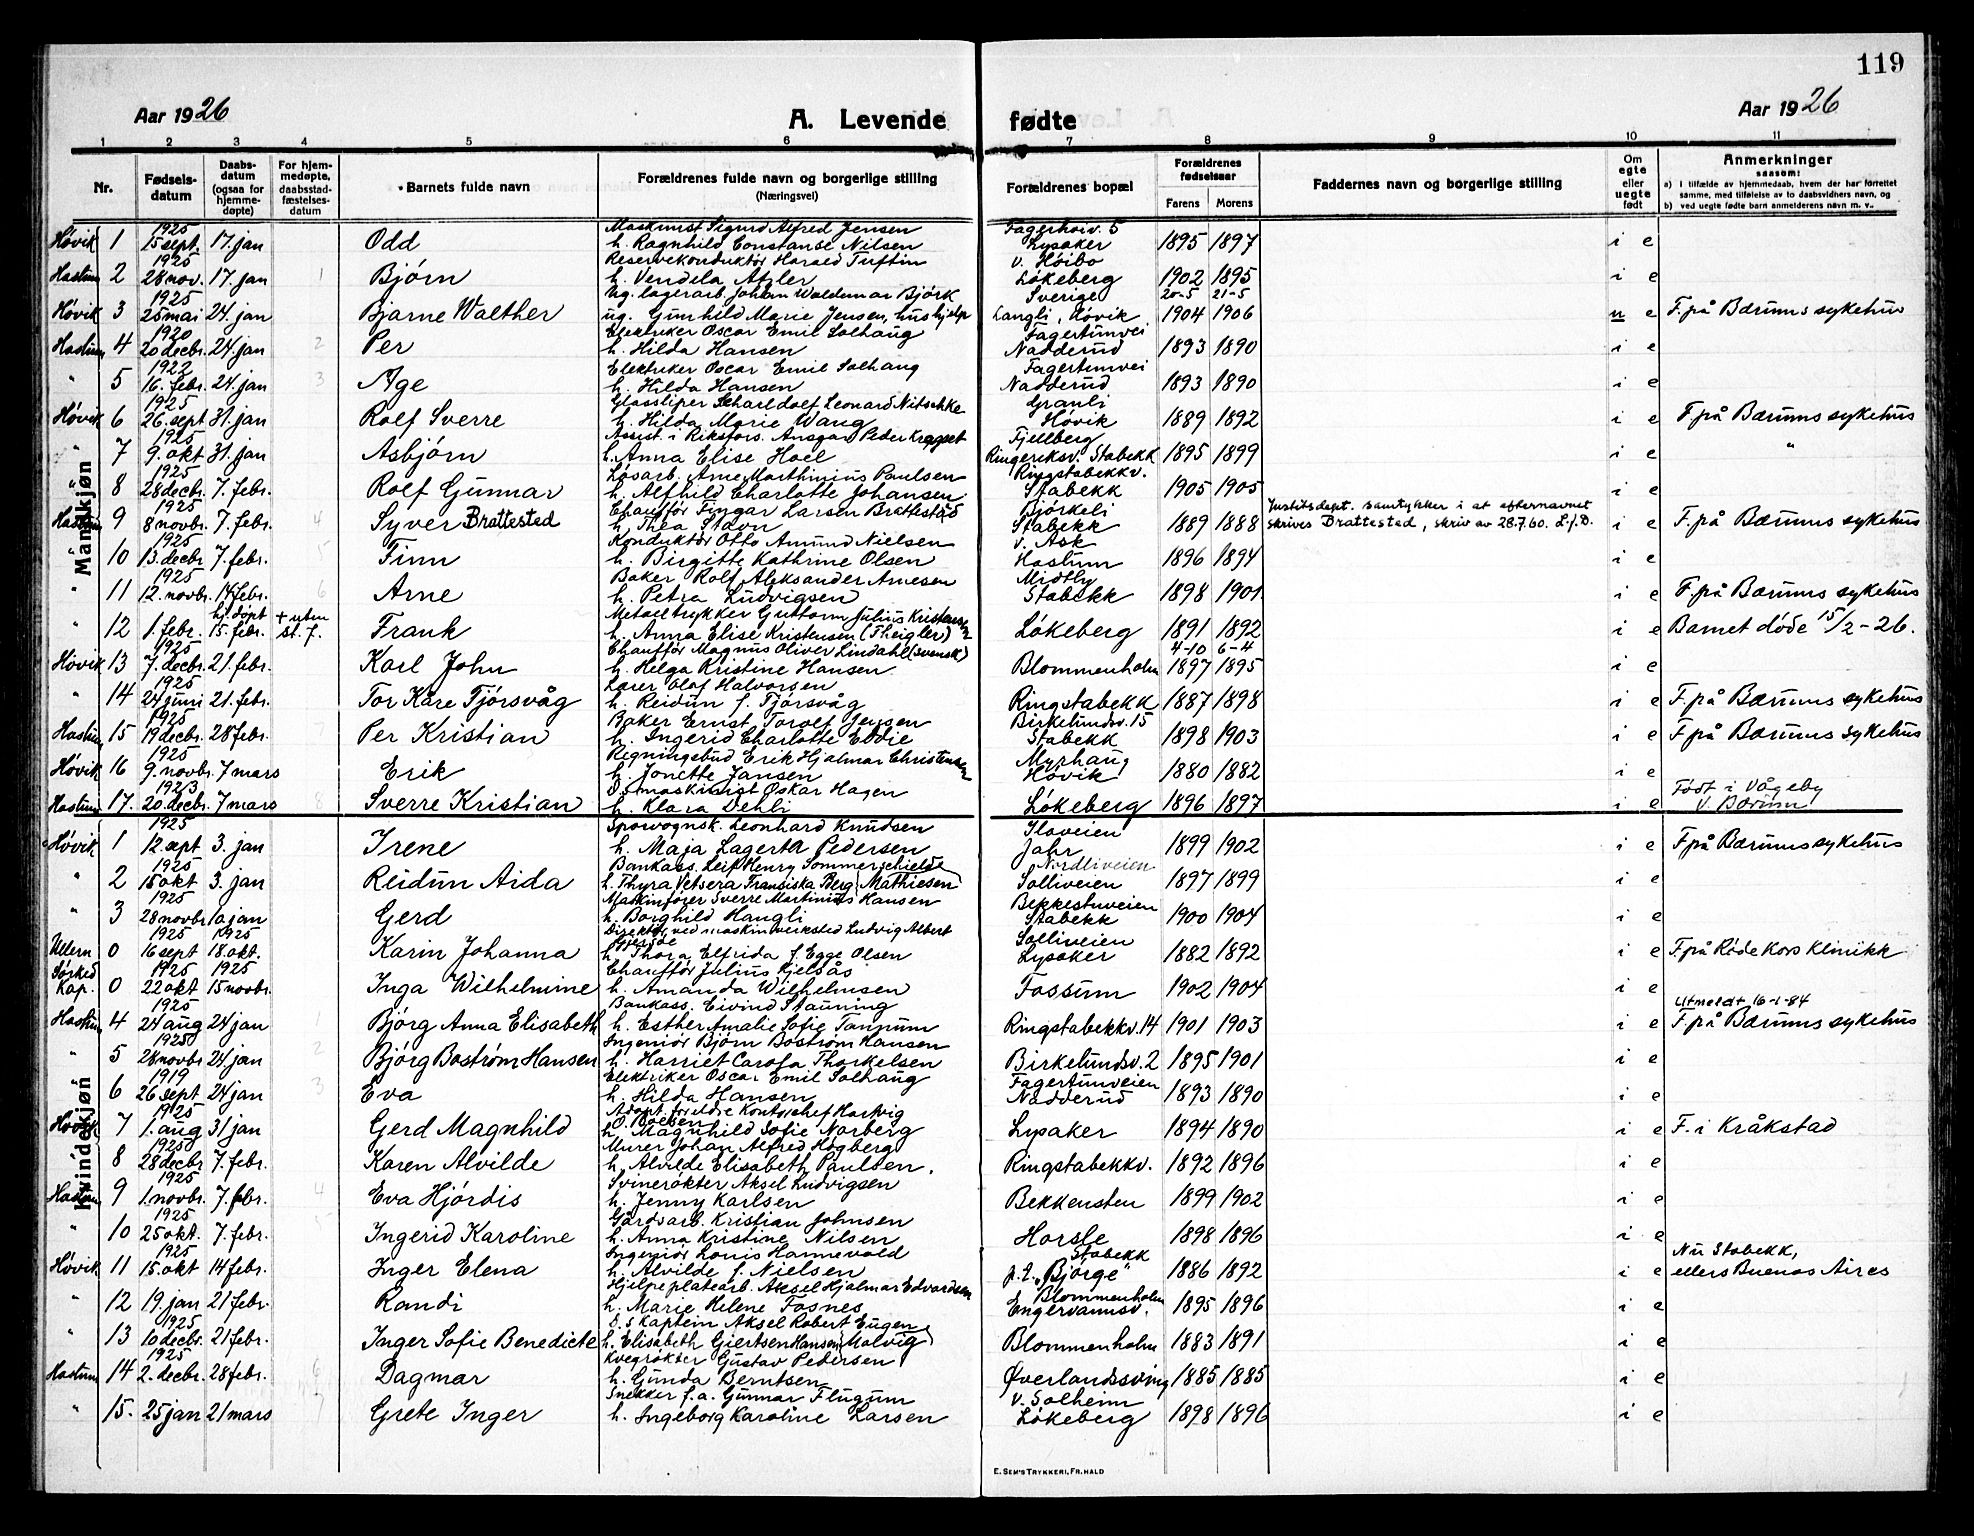 119
Aar 1926 A. Levende fødte Aar 1926
1 2 3 4 5 6 7 8 9 10 11
Nr. Fødselsdatum Daabsdatum (ogsaa for hjemmedøpte) For hjemmedøpte, daabsstadfæstelsesdatum Barnets fulde navn Forældrenes fulde navn og borgerlige stilling (Næringsvei) Forældrenes bopæl Forældrenes fødselsaar Farens Morens Faddernes navn og borgerlige stilling Om egte eller uegte født Anmerkninger saasom:
a) I tilfælde av hjemmedaab, hvem der har forrettet samme, med tilføielse av to daabsvidners navn, og
b) ved uegte fødte barn anmelderens navn m. v..
Mandkjøn
Høvik 1 1925 15 sept. 17. jan Odd Maskinist Sigurd Alfred Jensen h. Ragnhild Constanse Nilsen Lysaker 1895 1897 i e
Haslum 2 1925 28 nov. 17. jan 1 Bjørn Reservekonduktør Harald Tuftin h. Vendela Atzler v. Høibo Løkeberg 1902 1895 i e
Høvik 3 1925 25 mai 24. jan Bjarne Walther Ug. lagerarb. Johan Waldemar Björk ug. Gunhild Marie Jensen, hushjelp Sverige Langli, Høvik 20-5 1904 21-5 1906 u e F. på Bærums sykehus
Haslum 4 1920 20 decbr. 24. jan 2 Per Elektriker Oscar Emil Solhaug h. Hilda Hansen Fagertunvei Nadderud 1893 1890 i e
" 5 1922 16. febr. 24. jan 3 Age Elektriker Oscar Emil Solhaug h. Hilda Hansen Fagertunvei Nadderud 1893 1890 i e
Høvik 6 1925 26. sept 31. jan Rolf Sverre Glassliper Scharldolf Leonard Nitschke h. Hilda Marie Wang Granli Høvik 1889 1892 i e F. på Bærums sykehus
" 7 1925 9. okt 31. jan Asbjørn Assist. i Riksfors. Ansgar Peder Kragset h. Anna Elise Hoel Fjellberg Ringeriksv. Stabekk 1895 1899 i e "
" 8 1925 28 decbr. 7. febr. Rolf Gunnar Løsarb. Arne Marthinius Paulsen h. Alfhild Charlotte Johansen Ringstabekkv. Stabekk 1905 1905 i e
Haslum 9 1925 8 novbr. 7. febr. 4 Syver Brattestad Chauffør Fingar Larsen Brattestad h. Thea Stavn Bjørkeli Stabekk 1889 1888 Justitsdept. samtykker i at efternavnet skrives Brattestad, skriv av 28.7.60. L.f.D. i e F. på Bærums sykehus
" 10 1925 13. decbr. 7. febr. 5 Finn Konduktør Otto Amund Nielsen h. Birgitte Kathrine Olsen v. Ask Haslum 1896 1894 i e
" 11 1925 12. novbr. 14 febr. 6 Arne Baker Rolf Aleksander Arnesen h. Petra Ludvigsen Midtby Stabekk 1898 1901 i e F. på Bærums sykehus
" 12 1. febr. hj. døpt 15. febr. + uten st. f. Frank Metaltrykker Guttorm Julius Kristensen h. Anna Elise Kristensen (Theigler) Løkeberg 1891 1892 i e Barnet døde 15/2-26.
Høvik 13 1925 7. decbr. 21. febr. Karl John Chauffør Magnus Oliver Lindahl (svensk) h. Helga Kristine Hansen Blommenholm 4-10 1897 6-4 1895 i e
" 14 1925 24 juni 21. febr. Tor Kåre Tjørsvåg Lærer Olaf Halvorsen h. Reidun f. Tjørsvåg Ringstabekk 1887 1898 i e F. på Bærums sykehus
Haslum 15 1925 19 decbr. 28 febr. Per Kristian Baker Ernst Torolf Jensen h. Ingerid Charlotte Eddie Birkelundsv. 15 Stabekk 1898 1903 i e F. på Bærums sykehus
Høvik 16 1925 9. novbr. 7 mars Erik Regningsbud Erik Hjalmar Christensen h. Jonette Jansen Myrhaug Høvik 1880 1882 i e
Haslum 17. 1923 20. decbr. 7 mars 8 Sverre Kristian D.S maskinist Oskar Hagen h. Klara Dehli Løkeberg 1896 1897 i e Født i Vågeby v. Bærum
Kvindekjøn
Høvik 1 1925 12 sept 3. jan Irene Sporvognsk. Leonhard Knudsen h. Maja Lagerta Pedersen Jar 1899 1902 i e F. på Bærums sykehus
" 2 1925 18 okt 3. jan Reidun Aida Bankass. Leif Henry Sommerschielde h. Thyra Vetsera Fransiska Berg (Mathiesen) Nordliveien Solliveien 1897 1899 i e
" 3 1925 28 novbr 10 jan Gerd Maskinfører Sverre Martinius Hansen h. Borghild Haugli Bekkestuveien Stabekk 1900 1904 i e
Ullern 0 1925 16 sept 1925 18 okt. Karin Johanna Direktør ved maskinverksted Ludvig Albert h. Thora Elfrida f. Egge Olsen Solliveien Lysaker 1882 1892 i e F. på Røde Kors Klinikk
Sørked Kap. 0 1925 22 okt 1925 15 novbr. Inga Wilhelmine Chauffør Julius Kjelsås h. Amanda Wilhelmsen Fossum 1902 1904 i e
Haslum 4 1925 24 aug 24 jan 1 Bjørg Anna Elisabeth Bankass. Eivind Stauning h. Esther Amalie Sofie Tannum Ringstabekkv. 14 1901 1903 i e Utmeldt 16-1-84 F. på Bærums sykehus
" 5 1925 28 novbr 24 jan 2 Bjørg Bostrøm Hansen Ingeniør Bjørn Bostrøm Hansen h. Harriet Carola Thorkelsen Birkelundsv. 2 1895 1901 i e
" 6 1919 26 sept 24 jan 3 Eva Elektriker Oscar Emil Solhaug h. Hilda Hansen Fagertunveien Nadderud 1893 1890 i e
Høvik 7 1925 1. aug 31 jan Gerd Magnhild Adopt. foreldre Kontorchef Hartvig h. Magnhild Sofie Norberg Lysaker 1894 1890 i e F. i Kråkstad
" 8 1925 28 decbr 7. febr. Karen Alvilde Murer Johan Alfred Högberg h. Alvilde Elisabeth Paulsen. Ringstabekkv. 1892 1896 i e
Haslum 9 1925 1. novbr. 7. febr. 4 Eva Hjørdis Svinerøkter Aksel Ludvigsen h. Jenny Karlsen Bekkensten 1899 1902 i e
" 10 1925 25 okt. 7. febr. 5 Ingerid Karoline Gårdsarb. Kristian Johnsen h. Anna Kristine Nilsen Horsle 1898 1896 i e
Høvik 11 1925 15. okt 14 febr. Inger Elena Ingeniør Louis Hannevold h. Alvilde f. Nielsen Stabekk p.t. „Bjørge" 1886 1892 i e Nu Stabekk, ellers Buenos Aires
" 12 19. jan 21 febr. Randi Hjelpeplatearb. Aksel Hjalmar Edvardsen h. Marie Helene Fosnes Blommenholm Engervannsv. 1895 1896 i e
" 13 1925 10 decbr. 21 febr. Inger Sofie Benedicte D.S Kaptein Aksel Robert Eugen h. Elisabeth Giertsen Hansen (Malvig) Blommenholm 1883 1891 i e
Haslum 14 1925 2. decbr. 28 febr. 6 Dagmar Kvegrøkter Gustav Pedersen h. Gunda Berntsen Øverlandssving 1885 1885 i e
" 15. 25 jan 21 mars 7 Grete Inger Snekker f.a. Gunnar Flugum h. Ingeborg Karoline Larsen v. Solheim Løkeberg 1898 1896 i e
E. SEM'S TRYKKERI, FR.HALD